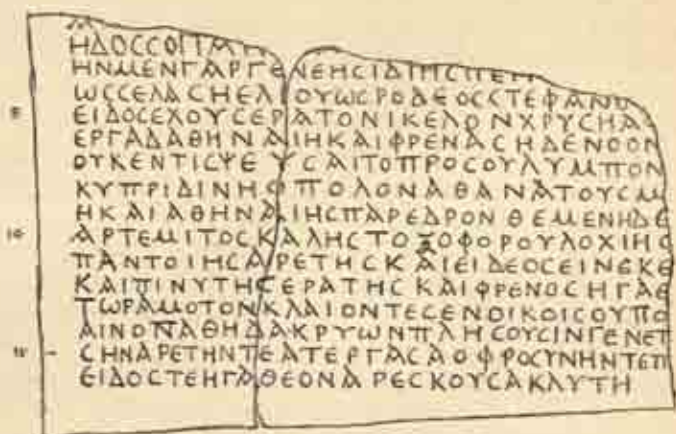 ΗΔΟССΟΙΠΑΗ
ΗΝΜΕΝΓΑΡΓΕΝΕΗСΙΔΙΗСΠΕΗ
ΩССΕΛΑСΗΕΛΙΟΥΩСΡΟΔΕΟССΤΕΦΑΝΩ
5 ΕΙΔΟСΕΧΟΥСΕΡΑΤΟΝΙΚΕΛΟΝΧΡΥСΗΑ
ΕΡΓΑΔΑΘΗΝΑΙΗΚΑΙΦΡΕΝΑСΗΔΕΝΟΟΝ
ΟΥΚΕΝΤΙСΨΕΥСΑΙΤΟΠΡΟСΟΥΛΥΜΠΟΝ
ΚΥΠΡΙΔΙΝΗΦΠΟΛΟΝΑΘΑΝΑΤΟΥСΜ
ΗΚΑΙΑΘΗΝΑΙΗСΠΑΡΕΔΡΟΝΘΕΜΕΝΗΔΕ
10 ΑΡΤΕΜΙΤΟСΚΑΛΗСΤΟΞΟΦΟΡΟΥΛΟΧΙΗС
ΠΑΝΤΟΙΗСΑΡΕΤΗСΚΑΙΕΙΔΕΟСΕΙΝΕΚΕ
ΚΑΙΠΙΝΥΤΗСΕΡΑΤΗСΚΑΙΦΡΕΝΟСΗΓΑΕ
ΤΩΡΑΜΟΤΟΝΚΛΑΙΟΝΤΕСΕΝΟΙΚΟΙСΟΥΠΟ
ΑΙΝΟΠΑΘΗΔΑΚΡΥΩΝΠΛΗСΟΥСΙΝΓΕΝΕΤ
15 СΗΝΑΡΕΤΗΝΤΕΑΤΕΡΓΑСΑΟΦΡΟСΥΝΗΝΤΕΠ
ΕΙΔΟСΤΕΗΓΑΘΕΟΝΑΡΕСΚΟΥСΑΚΛΥΤΗ